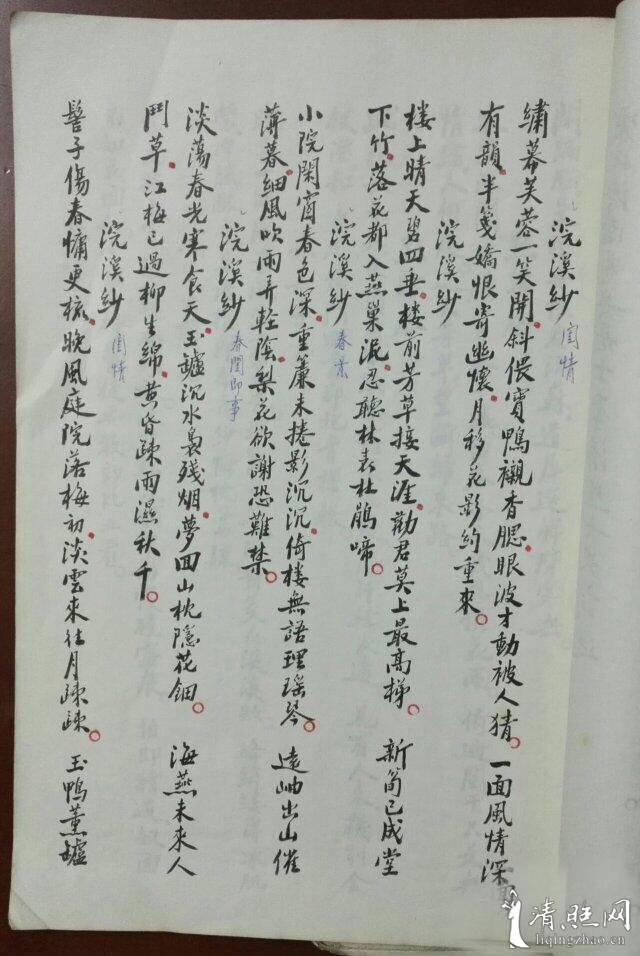 浣溪紗 閨情
繡幕芙蓉一笑開.斜偎寶鴨襯香腮.眼波才動被人猜。 一面風情深
有韻.半箋嬌恨寄幽懷.月移花影約重來。
浣溪紗
楼上晴天碧四垂.楼前芳草接天涯.勸君莫上最高梯。 新筍已成堂
下竹.落花都入燕巢泥.忍聽林表杜鵑啼。
浣溪紗 春景
小院閑窗春色深.重簾未捲影沉沉.倚楼無語理瑶琴。 遠岫出山催
薄暮.細風吹雨弄輕陰.梨花欲謝恐難禁。
浣溪紗 春閨即事
淡蕩春光寒食天.玉鑪沉水裊残烟.夢回山枕隱花鈿。 海燕未來人
鬥草.江梅已過柳生綿.黄昏疎雨濕秋千。
浣溪紗 閨情
髻子傷春慵更梳.晚風庭院落梅初.淡雲來往月疎疎。 玉鴨薰鑪
清照网
liqingzhao.cn